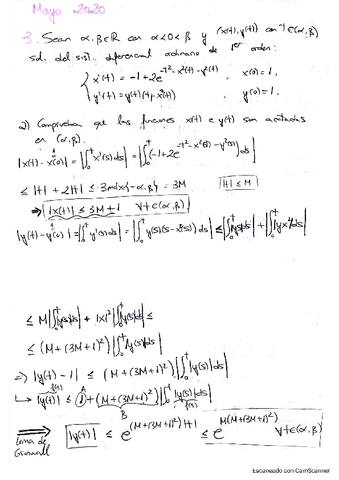 Mayo 2020
3. Sean α, β ∈ ℝ con α<0<β y (x(t), y(t)) con t ∈ (α, β)
sol. del sist. diferencial ordinario de 1er orden:
x'(t) = -1 + 2e^{-t²-x²(t)-y²(t)}, x(0)=1,
y'(t) = y(t)(t-x²(t)) y(0)=1.
a) Comprueba que las funciones x(t) e y(t) son acotadas
en (α, β).
|x(t)-x(0)| = |∫₀ᵗ x'(s)ds| = |∫₀ᵗ (-1+2e^{-s²-x²(s)-y²(s)})ds|
≤ |t| + 2|t| ≤ 3máx{-α, β} = 3M |t| ≤ M
⇒ |x(t)| ≤ 3M+1 ∀t∈(α, β)
|y(t)-y(0)| = |∫₀ᵗ y'(s)ds| = |∫₀ᵗ y(s)(s-x²(s))ds| ≤ |∫₀ᵗ |y|s|ds| + |∫₀ᵗ |y|x²|ds|
≤ M|∫₀ᵗ |y(s)|ds| + |x|²|∫₀ᵗ |y(s)|ds| ≤
≤ (M+(3M+1)²)|∫₀ᵗ |y(s)|ds|
⇒ |y(t)-1| ≤ (M+(3M+1)²)|∫₀ᵗ |y(s)|ds|
f(t) A
↳ |y(t)| ≤ 1 + (M+(3M+1)²)|∫₀ᵗ |y(s)|ds|
B f(s)
⇒ |y(t)| ≤ e^{(M+(3M+1)²)|t|} ≤ e^{M(M+(3M+1)²)} ∀t∈(α, β)
Lema de
Gronwall
Escaneado con CamScanner